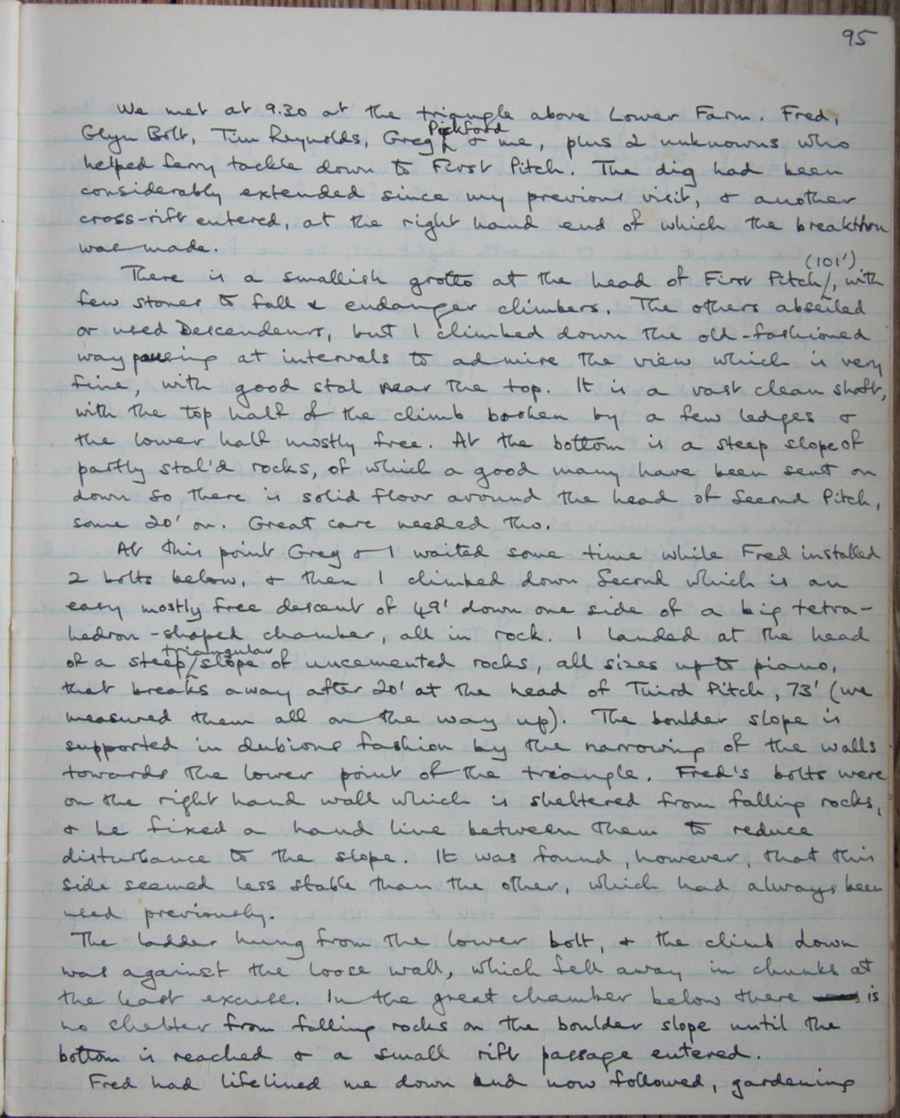 95
We met at 9.30 at the triangle above Lower Farm. Fred,
Glyn Bolt, Tim Reynolds, Greg Pickford & me, plus 2 unknowns who
helped ferry tackle down to First Pitch. The dig had been
considerably extended since my previous visit, & another
cross-rift entered, at the right hand end of which the breakthru
was made.
There is a smallish grotto at the head of First Pitch (101'), with
few stones to fall & endanger climbers. The others abseiled
or used Descendeurs, but I climbed down the old-fashioned
way pausing at intervals to admire the view which is very
fine, with good stal near the top. It is a vast clean shaft,
with the top half of the climb broken by a few ledges &
the lower half mostly free. At the bottom is a steep slope of
partly stal'd rocks, of which a good many have been sent on
down so there is solid floor around the head of Second Pitch,
some 20' on. Great care needed tho.
At this point Greg & I waited some time while Fred installed
2 bolts below, & then I climbed down Second which is an
easy mostly free descent of 49' down one side of a big tetra-
hedron-shaped chamber, all in rock. I landed at the head
of a steep triangular slope of uncemented rocks, all sizes up to piano,
that breaks away after 20' at the head of Third Pitch, 73' (we
measured them all on the way up). The boulder slope is
supported in dubious fashion by the narrowing of the walls
towards the lower point of the triangle. Fred's bolts were
on the right hand wall which is sheltered from falling rocks,
& he fixed a hand line between them to reduce
disturbance to the slope. It was found, however, that this
side seemed less stable than the other, which had always been
used previously.
The ladder hung from the lower bolt, & the climb down
was against the loose wall, which fell away in chunks at
the least excuse. In the great chamber below there is
no shelter from falling rocks on the boulder slope until the
bottom is reached & a small rift passage entered.
Fred had lifelined me down and now followed, gardening